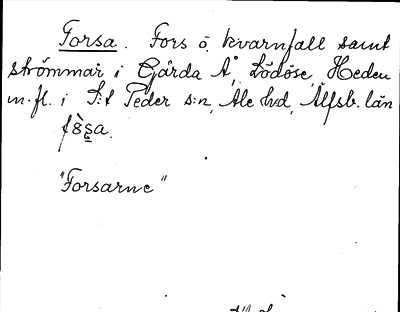 Forsa. Fors o. kvarnfall samt
strömmar i Gårda Å, Lödöse, Heden
m.fl. i S:t Peder s:n, Ale hd, Älfsb. län
"Forsarne"